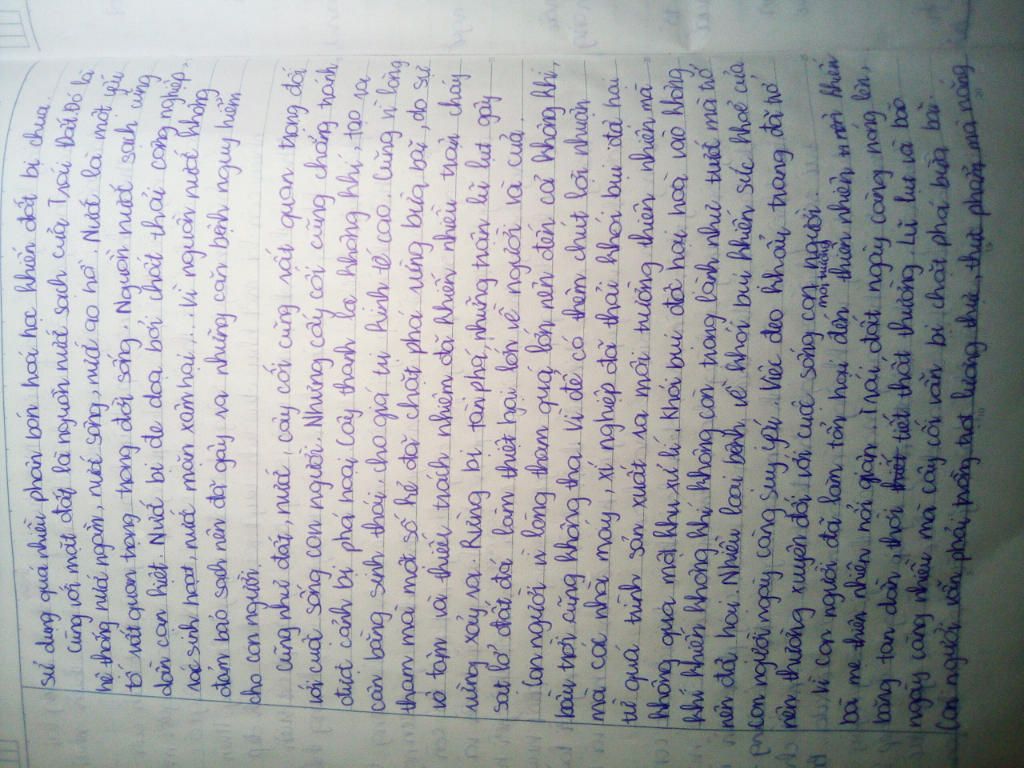 sử dụng quá nhiều phân bón hoá học khiến đất bị chua.
Cùng với mất đất, là nguồn nước sạch của Trái Đất. Đó là
hệ thống nước ngầm, nước sông, nước ao hồ. Nước là một yếu
tố rất quan trọng trong đời sống. Nguồn nước sạch ứng
dần cạn kiệt. Nước bị đe doạ bởi chất thải công nghiệp,
rác sinh hoạt, nước mặn xâm hại... Vì nguồn nước không
đảm bảo sạch nên đã gây ra những căn bệnh nguy hiểm
cho con người.
Cũng như đất, nước, cây cối cũng rất quan trọng đối
với cuộc sống con người. Những cây cối cũng chẳng tránh
được cảnh bị phá hoại. Cây thanh lọc không khí, tạo ra
cân bằng sinh thái, cho giá trị kinh tế cao. Cũng vì lòng
tham mà một số kẻ đã chặt phá rừng bừa bãi, do sự
vô tâm và thiếu trách nhiệm đã khiến nhiều trận cháy
rừng xảy ra. Rừng bị tàn phá, những trận lũ lụt gây
sạt lở đất đã làm thiệt hại lớn về người và của.
Con người vì lòng tham quá lớn nên đến cả không khí,
bầu trời cũng không tha. Vì để có thêm chút lợi nhuận
mà các nhà máy, xí nghiệp đã thải khói bụi độc hại
từ quá trình sản xuất ra môi trường thiên nhiên mà
không qua một khâu xử lí. Khói bụi độc hại hoà vào không
khí khiến không khí không còn trong lành như trước mà trở
nên độc hại. Nhiều loại bệnh về khói bụi khiến sức khoẻ của
con người ngày càng suy yếu. Việc đeo khẩu trang đã trở
nên thường xuyên đối với cuộc sống con người.
Vì con người đã làm tổn hại đến môi trường thiên nhiên nên khiến
bà mẹ thiên nhiên nổi giận. Trái đất ngày càng nóng lên,
băng tan dần, thời tiết thất thường. Lũ lụt và bão
ngày càng nhiều mà cây cối vẫn bị chặt phá bừa bãi.
Con người vẫn phải trồng trọt lương thực, thực phẩm mà nắng